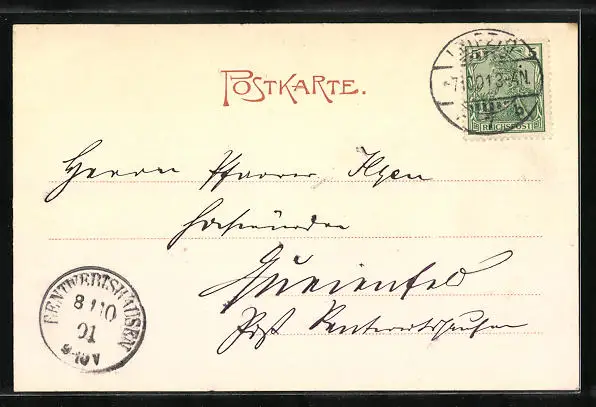 POSTKARTE.
LEIPZIG
5
7.10.01 3-4N.
REICHSPOST
Herrn Pfarrer Ilgen
Hochwürden
Queienfeld
Post Rentwertshausen
RENTWERTSHAUSEN
8 10
01
9-10V